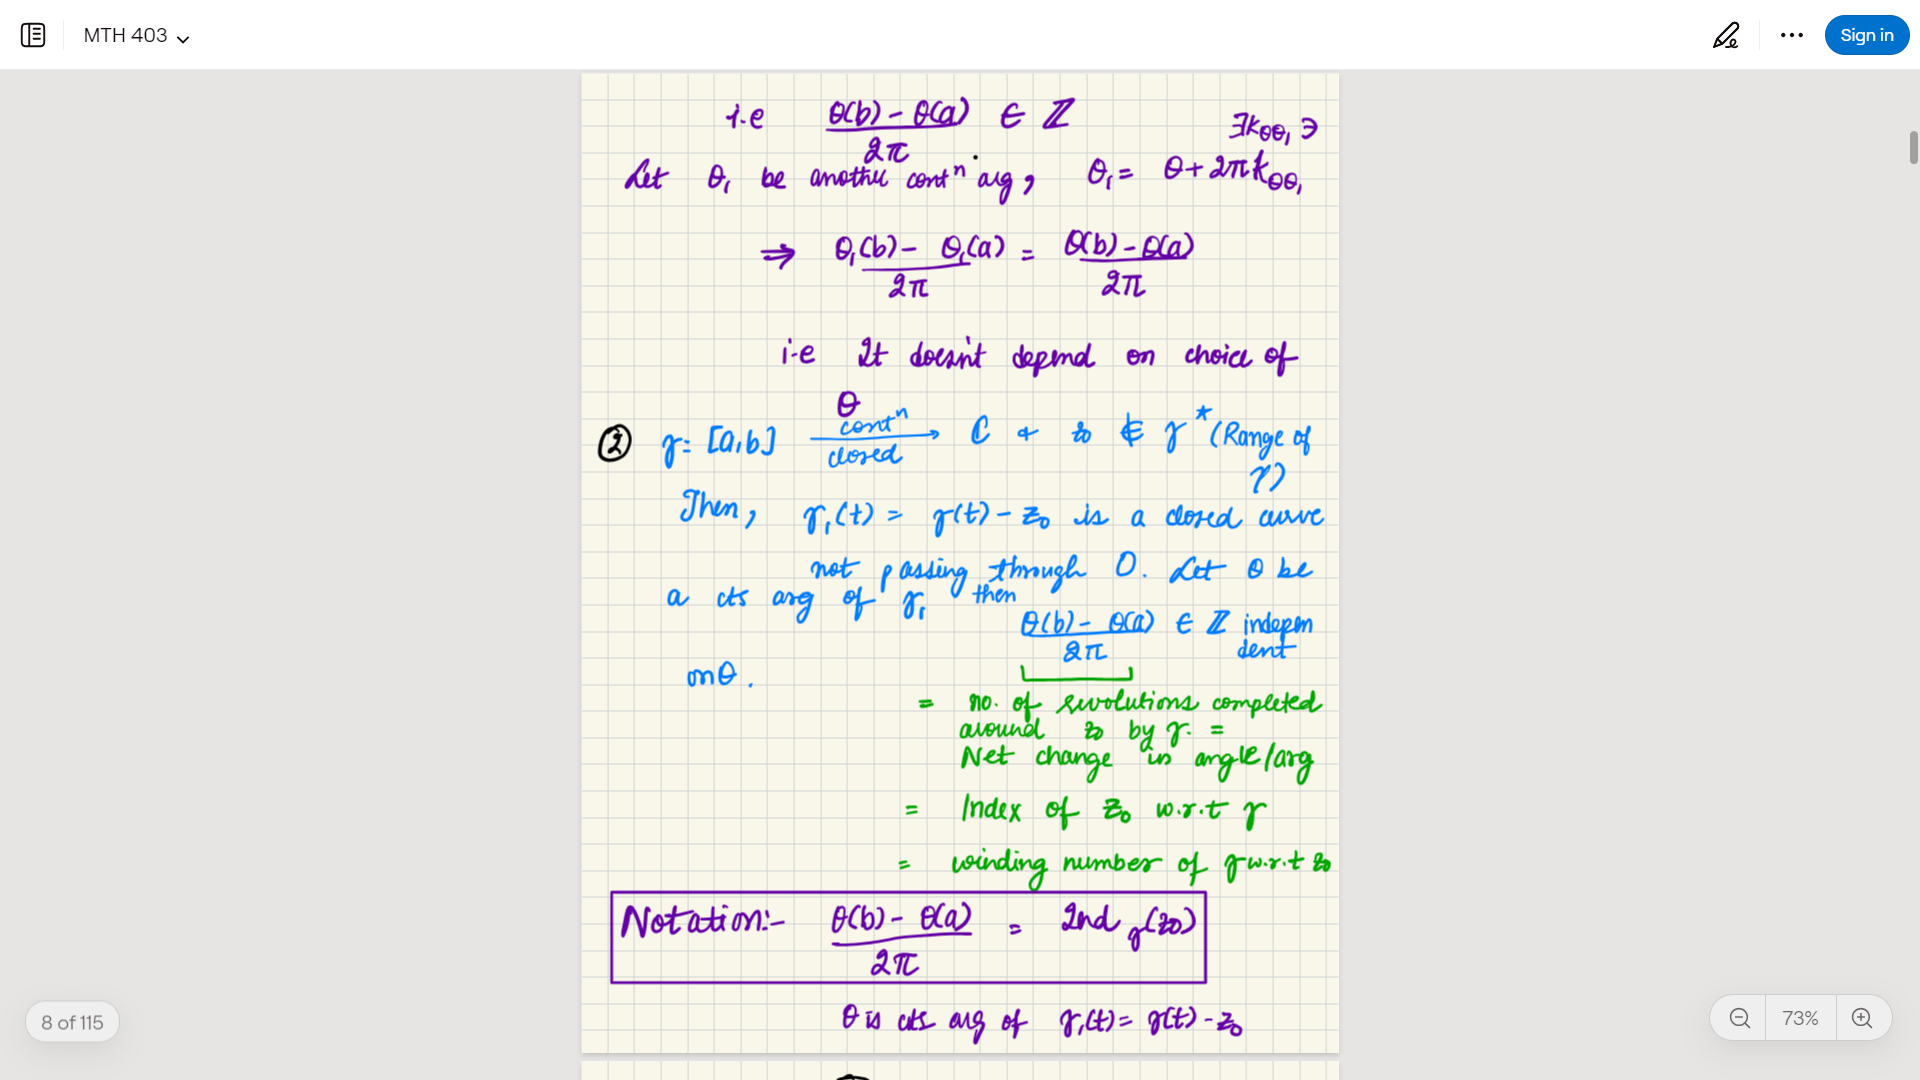 MTH 403
Sign in
i.e (θ(b) - θ(a))/2π ∈ ℤ
∃ k_θθ₁ ∋
Let θ₁ be another contⁿ arg, θ₁ = θ + 2πk_θθ₁
⇒ (θ₁(b) - θ₁(a))/2π = (θ(b) - θ(a))/2π
i.e It doesn't depend on choice of
θ
② γ: [a,b] contⁿ closed → ℂ & z₀ ∉ γ* (Range of
γ)
Then, γ₁(t) = γ(t) - z₀ is a closed curve
not passing through 0. Let θ be
a cts arg of γ₁ then
(θ(b) - θ(a))/2π ∈ ℤ indepen
dent
on θ.
= no. of revolutions completed
around z₀ by γ. =
Net change in angle/arg
= Index of z₀ w.r.t γ
= winding number of γ w.r.t z₀
Notation:- (θ(b) - θ(a))/2π = Ind_γ(z₀)
θ is cts arg of γ₁(t) = γ(t) - z₀
8 of 115
73%